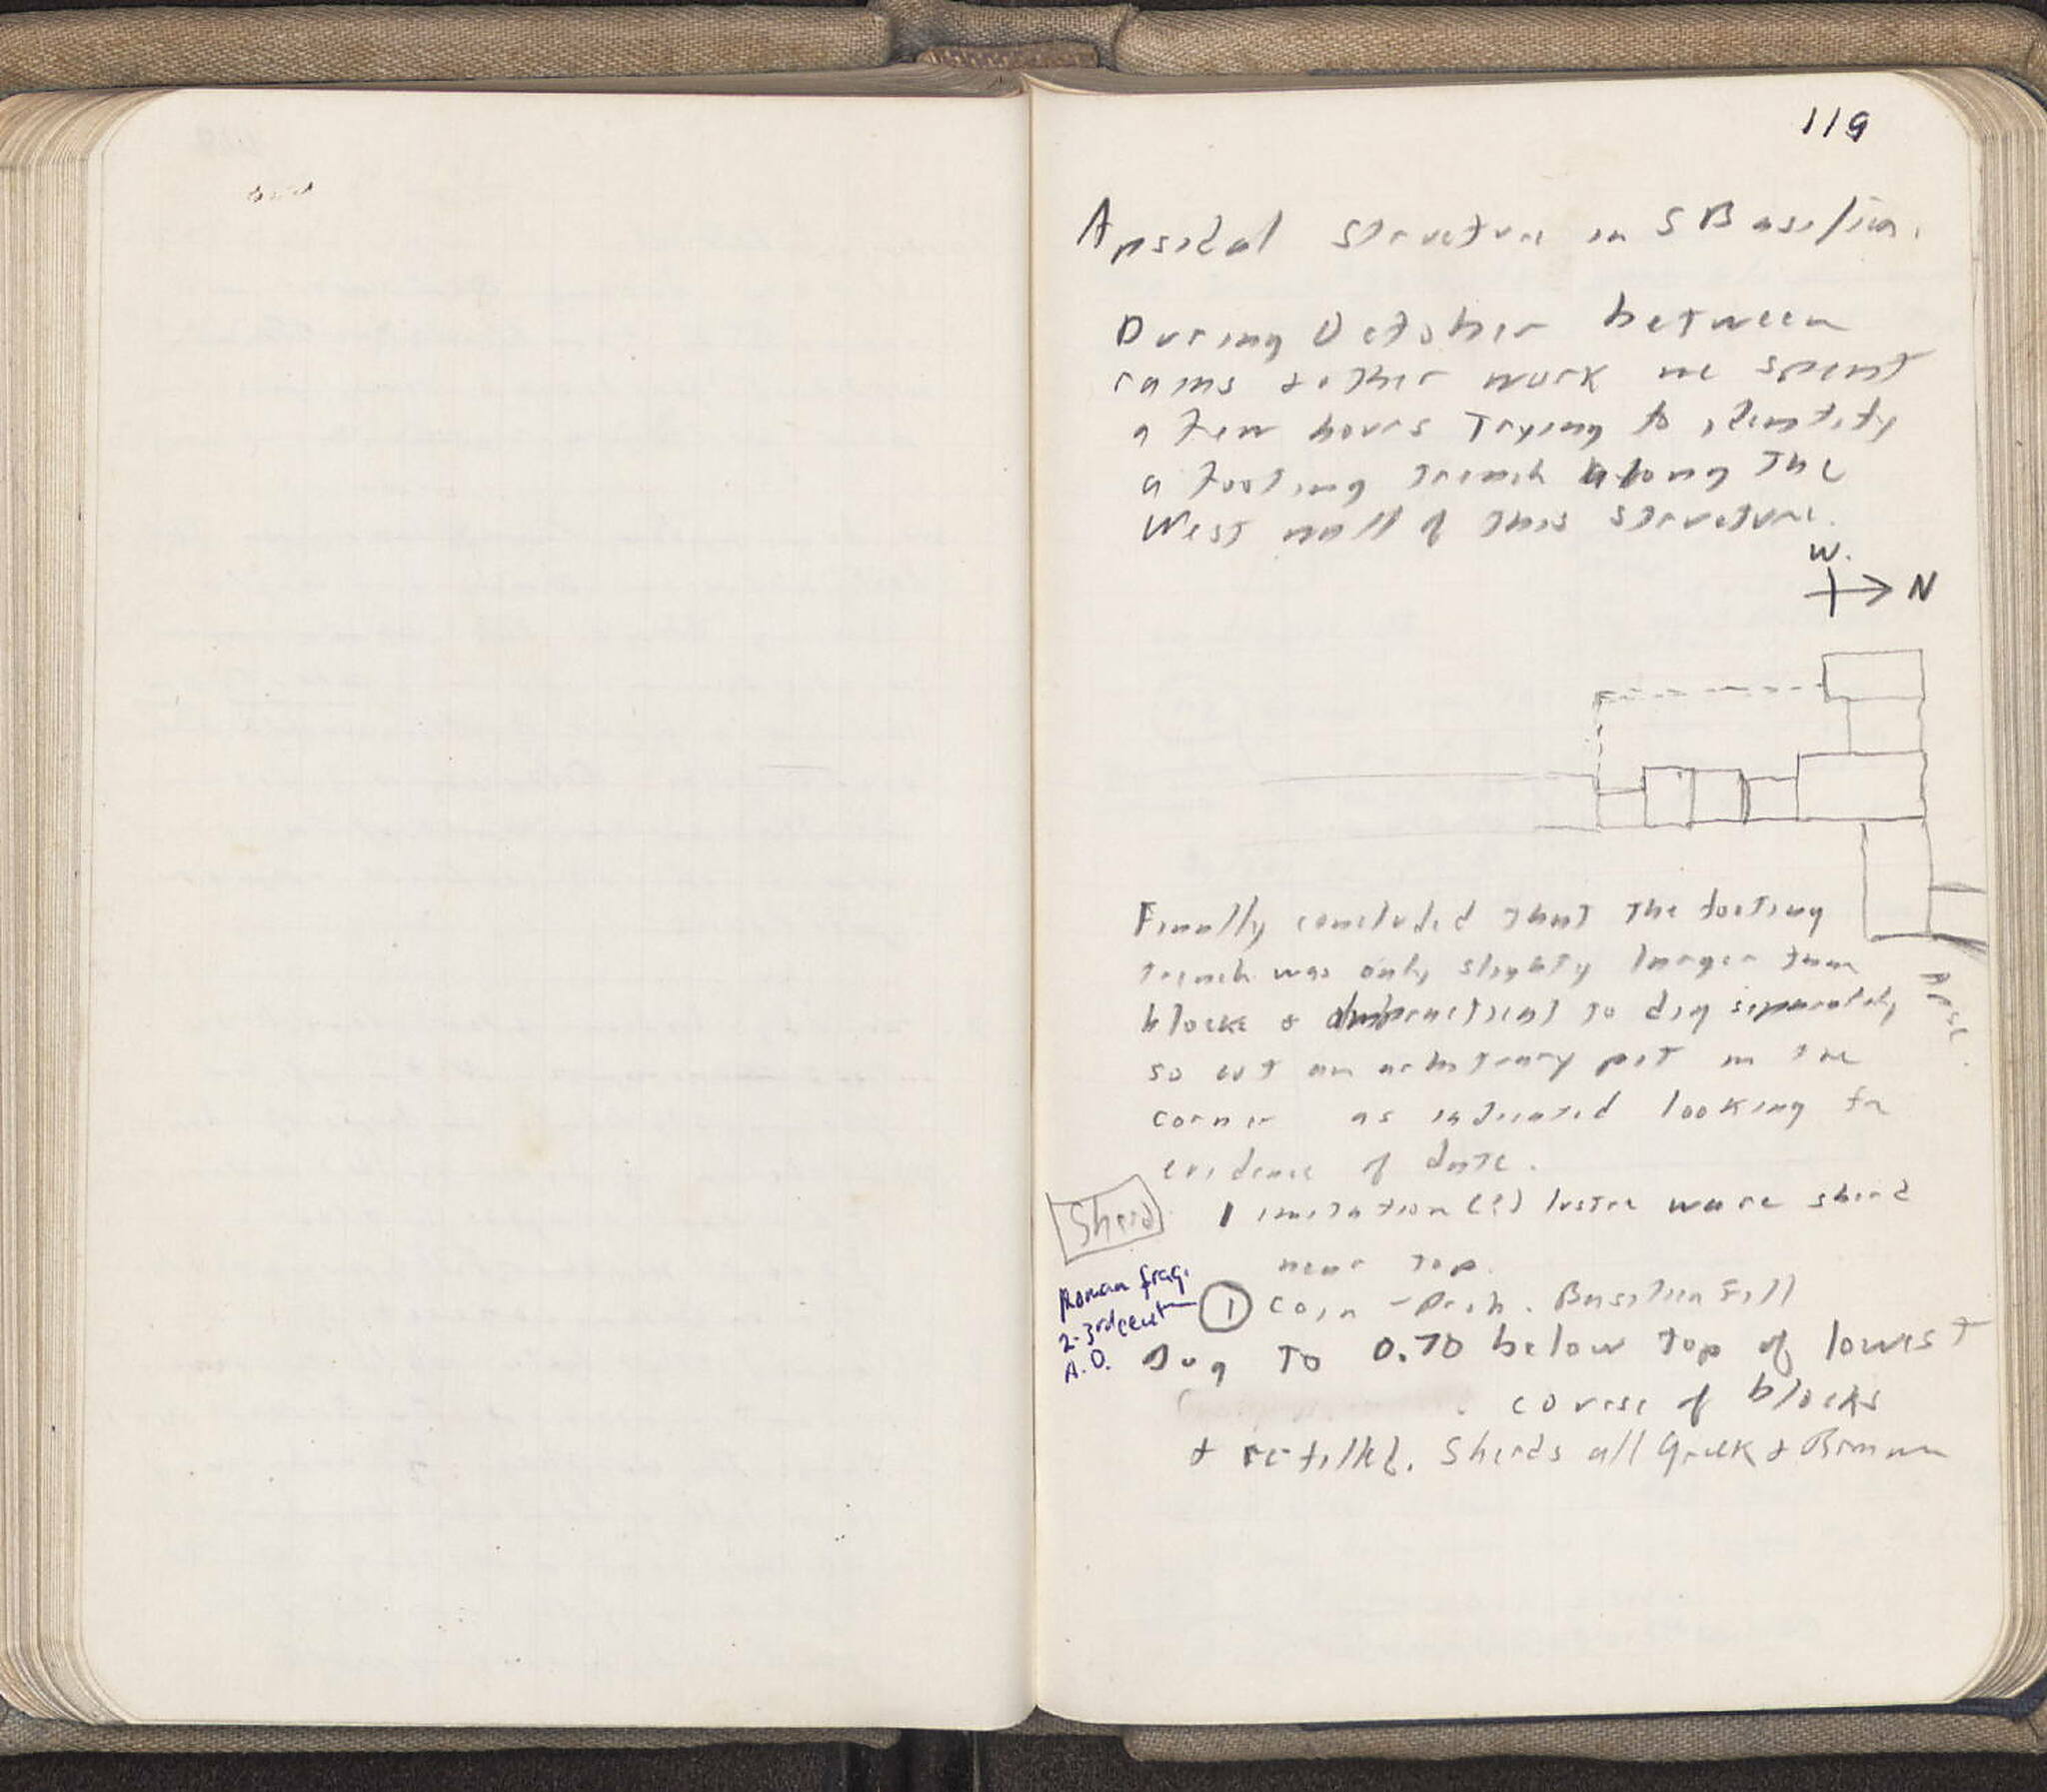 119
Apsidal Structure in S Basilica.
During October between
rains & other work we spent
a few hours trying to identify
a footing trench along the
West wall of this structure.
W.
N
Finally concluded that the footing
trench was only slightly larger than
blocks & impractical to dig separately
so cut an arbitrary pit in the
corner as indicated looking for
evidence of date.
Sherd
1 imitation (?) lustre ware sherd
near top.
Roman frag.
2-3rd cent
A.D.
① Coin - Prob. Basilica Fill
Dug to 0.70 below top of lowest
course of blocks
& refilled. Sherds all Greek & Roman